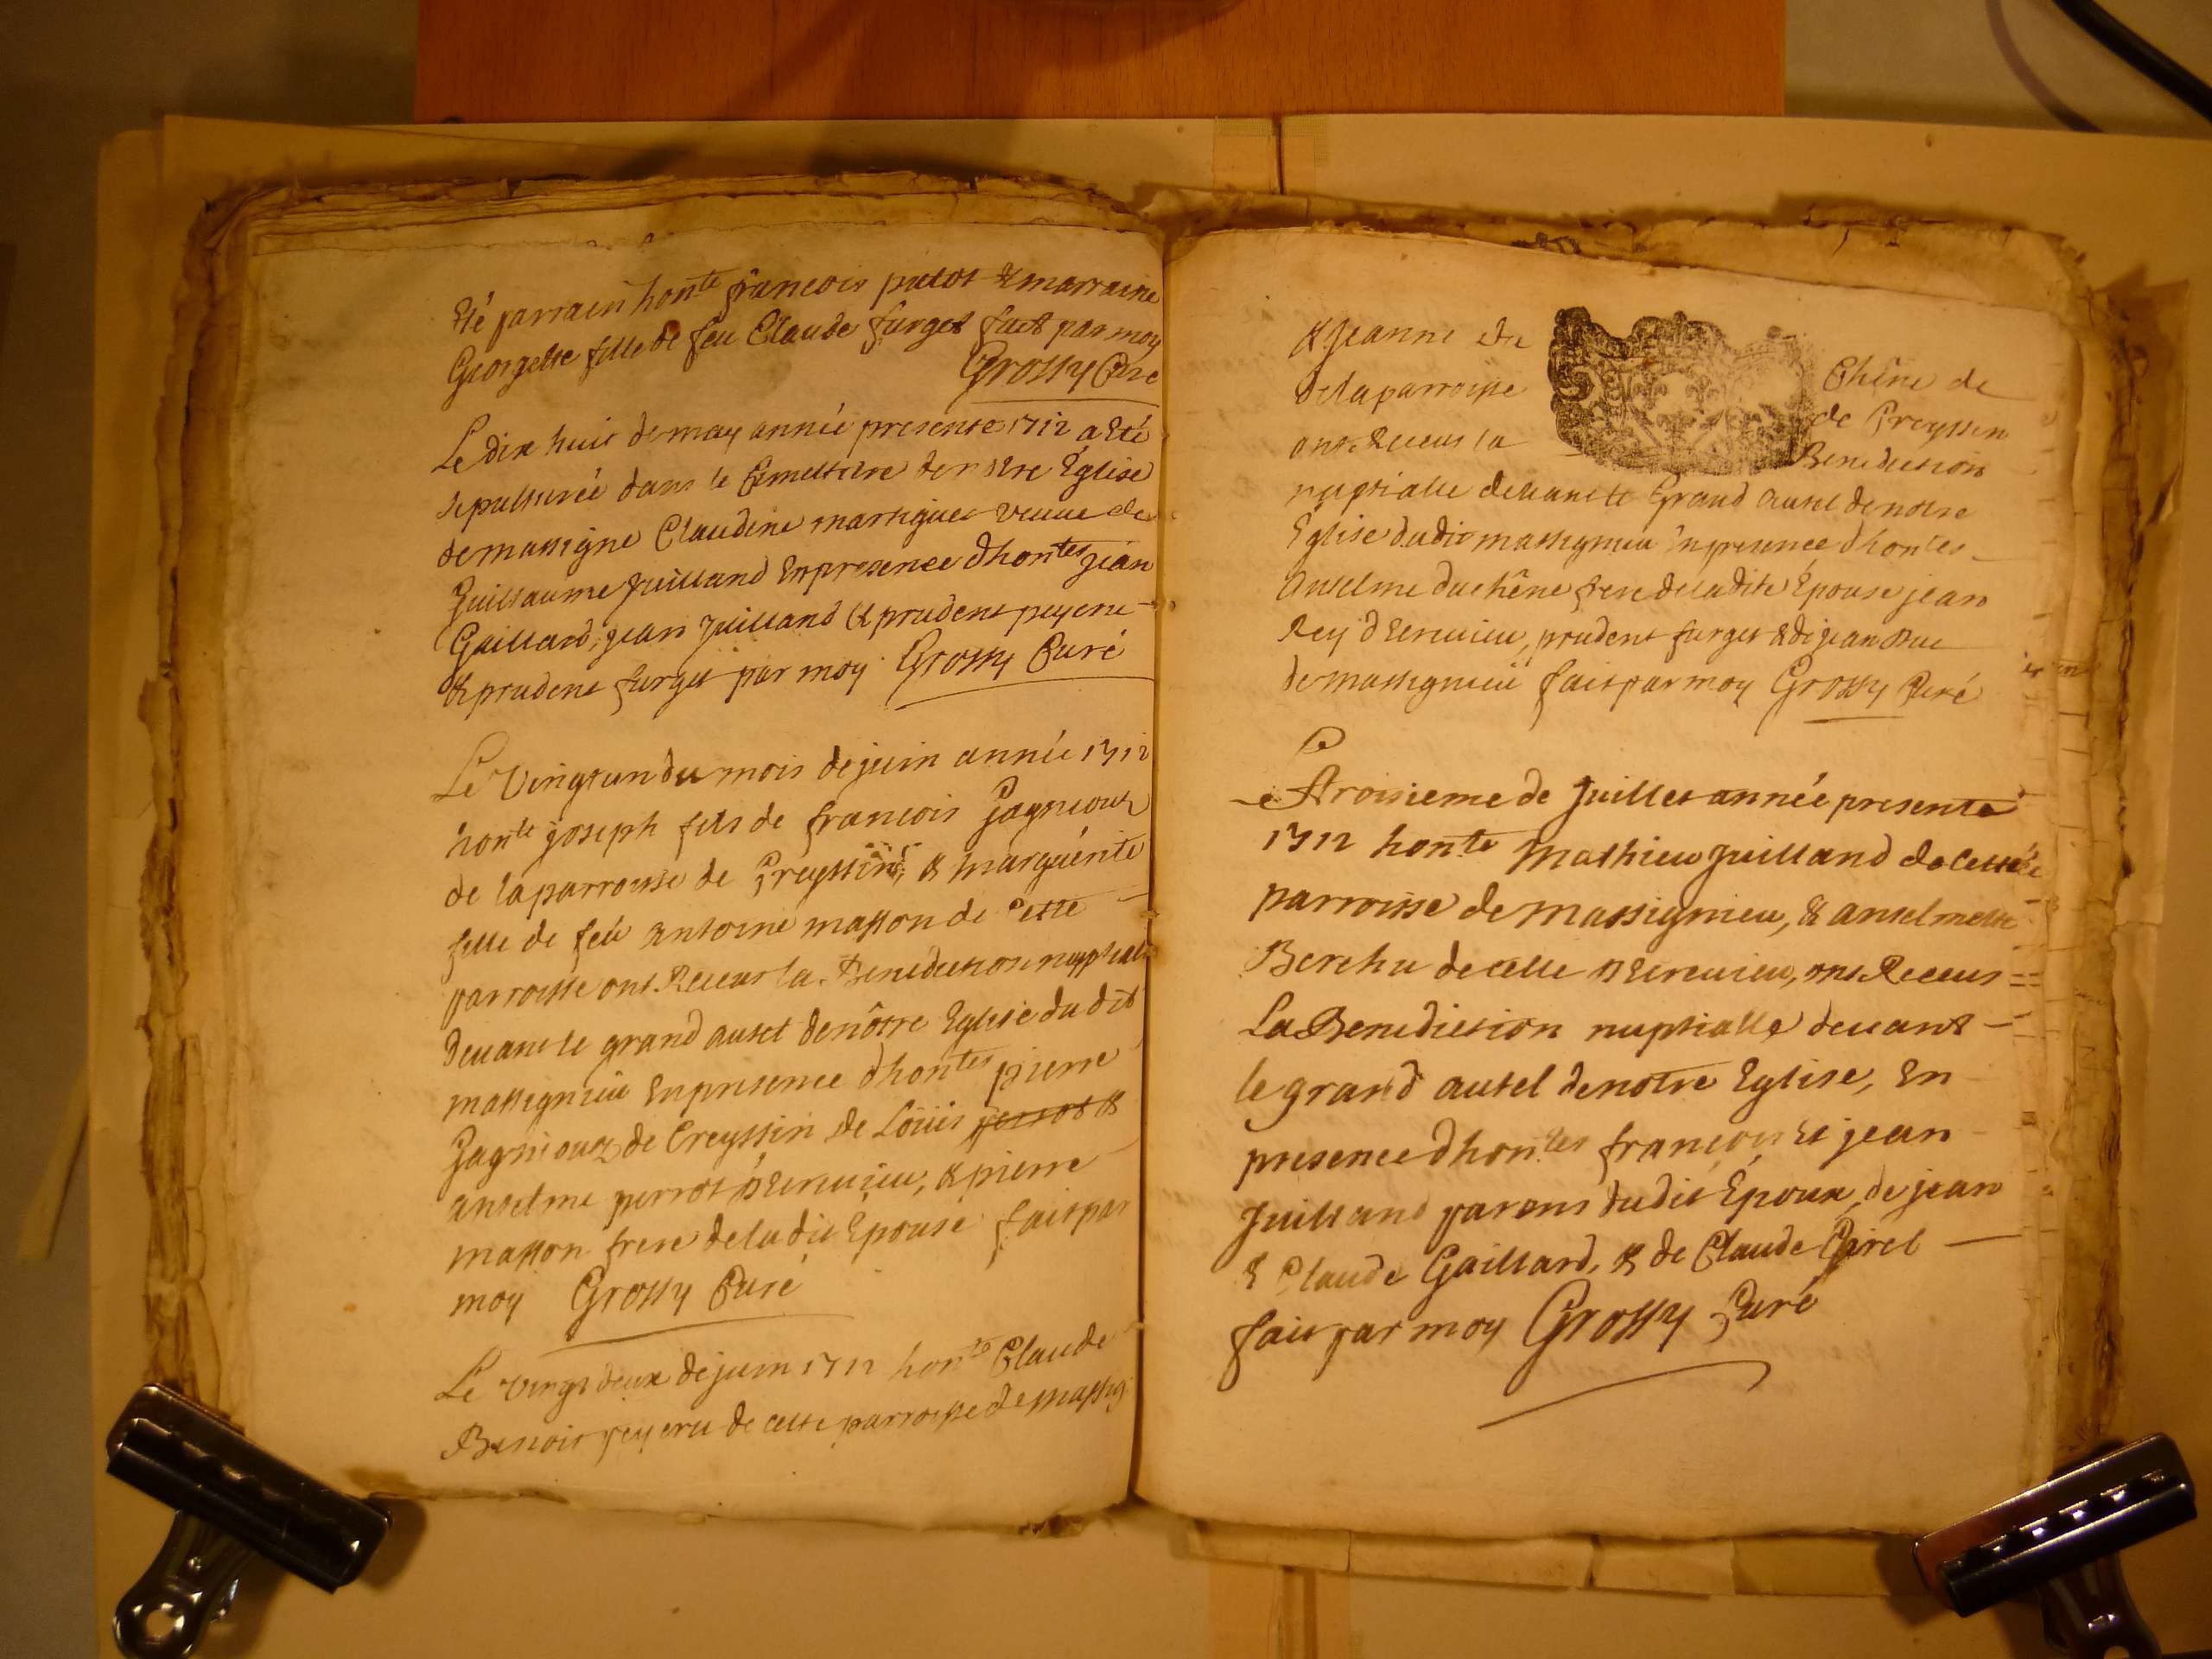 Eté parrain hon.te françois pittot & marraine
Georgette fille de feu Claude furget fait par moy
Grossy Curé
Le dix huit de may année presente 1712 a Eté
sepulturée dans le Cimettiere de nostre Église
de massigne Claudine martigues veuue de
Guillaume Juilland En presence d'hon.tes jean
Gaillard, jean Juilland & prudent peyeru
& prudent furget par moy Grossy Curé
Le Vingt un du mois de juin année 1712
hon.te joseph fils de françois Jagnioux
de la parroisse de Creyssin, & marguérite
fille de feü antoine masson de Cette
parroisse ont Receus la Benediction nuptiale
deuant le grand autel de nôtre Eglise du dit
massignieu En presence d'hon.tes pierre
Jagnioux de Creyssin de Loüis &
anselme perrot d'Ecruuieu, & pierre
masson frere de la dit Epouse fait par
moy Grossy Curé
Le vingt deux de juin 1712 hon.te Claude
Benoit peyeru de cette parroisse de massig
& jeanne du Chêne de
de la parroisse de Creyssin
ont Receus la Benediction
nuptialle deuant le Grand autel de notre
Église dudit massignieu En presence d'hontes
anselme duchêne frere de la dite Épouse jean
Rey d'Ecruuieu, prudent furget & de jean Duc
de massignieü fait par moy Grossy Curé
Le
Le troisieme de Juillet année presente
1712 hon.te Mathieu Juilland de Cette
parroisse de Massignieu, & anselmette
Berthu de celle d'Ecruuieu, ont Receus
La Benediction nuptialle deuant
le grand autel de notre Eglise, En
presence d'hon.tes françois Et jean
Juilland parens du dit Époux, de jean
& Claude Gaillard, & de Claude Carel
fait par moy Grossy Curé